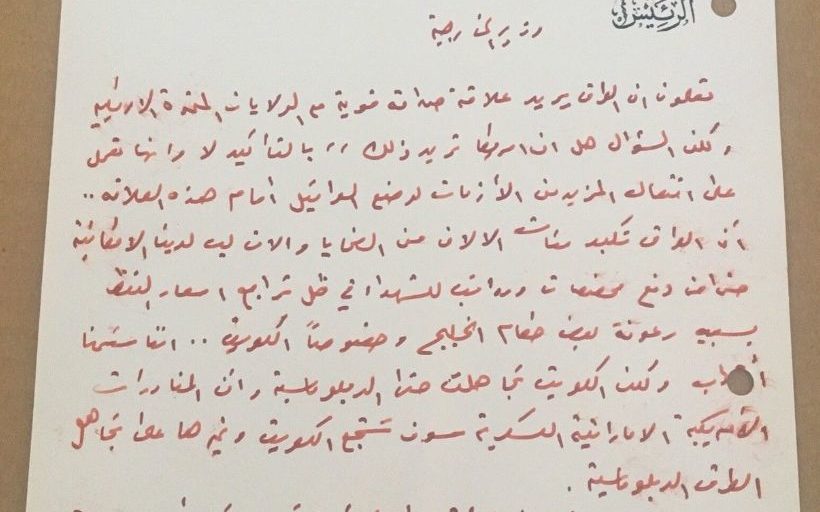 الرئيس
وزير الخارجية
تعلمون ان العراق يريد علاقة صداقة قوية مع الولايات المتحدة الامريكية
ولكن السؤال هل ان امريكا تريد ذلك ،، بالتأكيد لا وانها تعمل
على افتعال المزيد من الأزمات لوضع العراقيل امام هذه العلاقه ..
أن العراق تكبد مئات الالاف من الضحايا والان ليس لدينا الامكانية
حتى من دفع مخصصات ورواتب للشهداء في ظل تراجع اسعار النفط
بسبب رعونة بعض حكام الخليج وخصوصاً الكويت .. اننا سئمنا
ولكن الكويت تجاهلت حتى الدبلوماسية وان المناورات
الأمريكية الاماراتية العسكرية سوف تشجع الكويت وغيرها على تجاهل
الطرق الدبلوماسية .